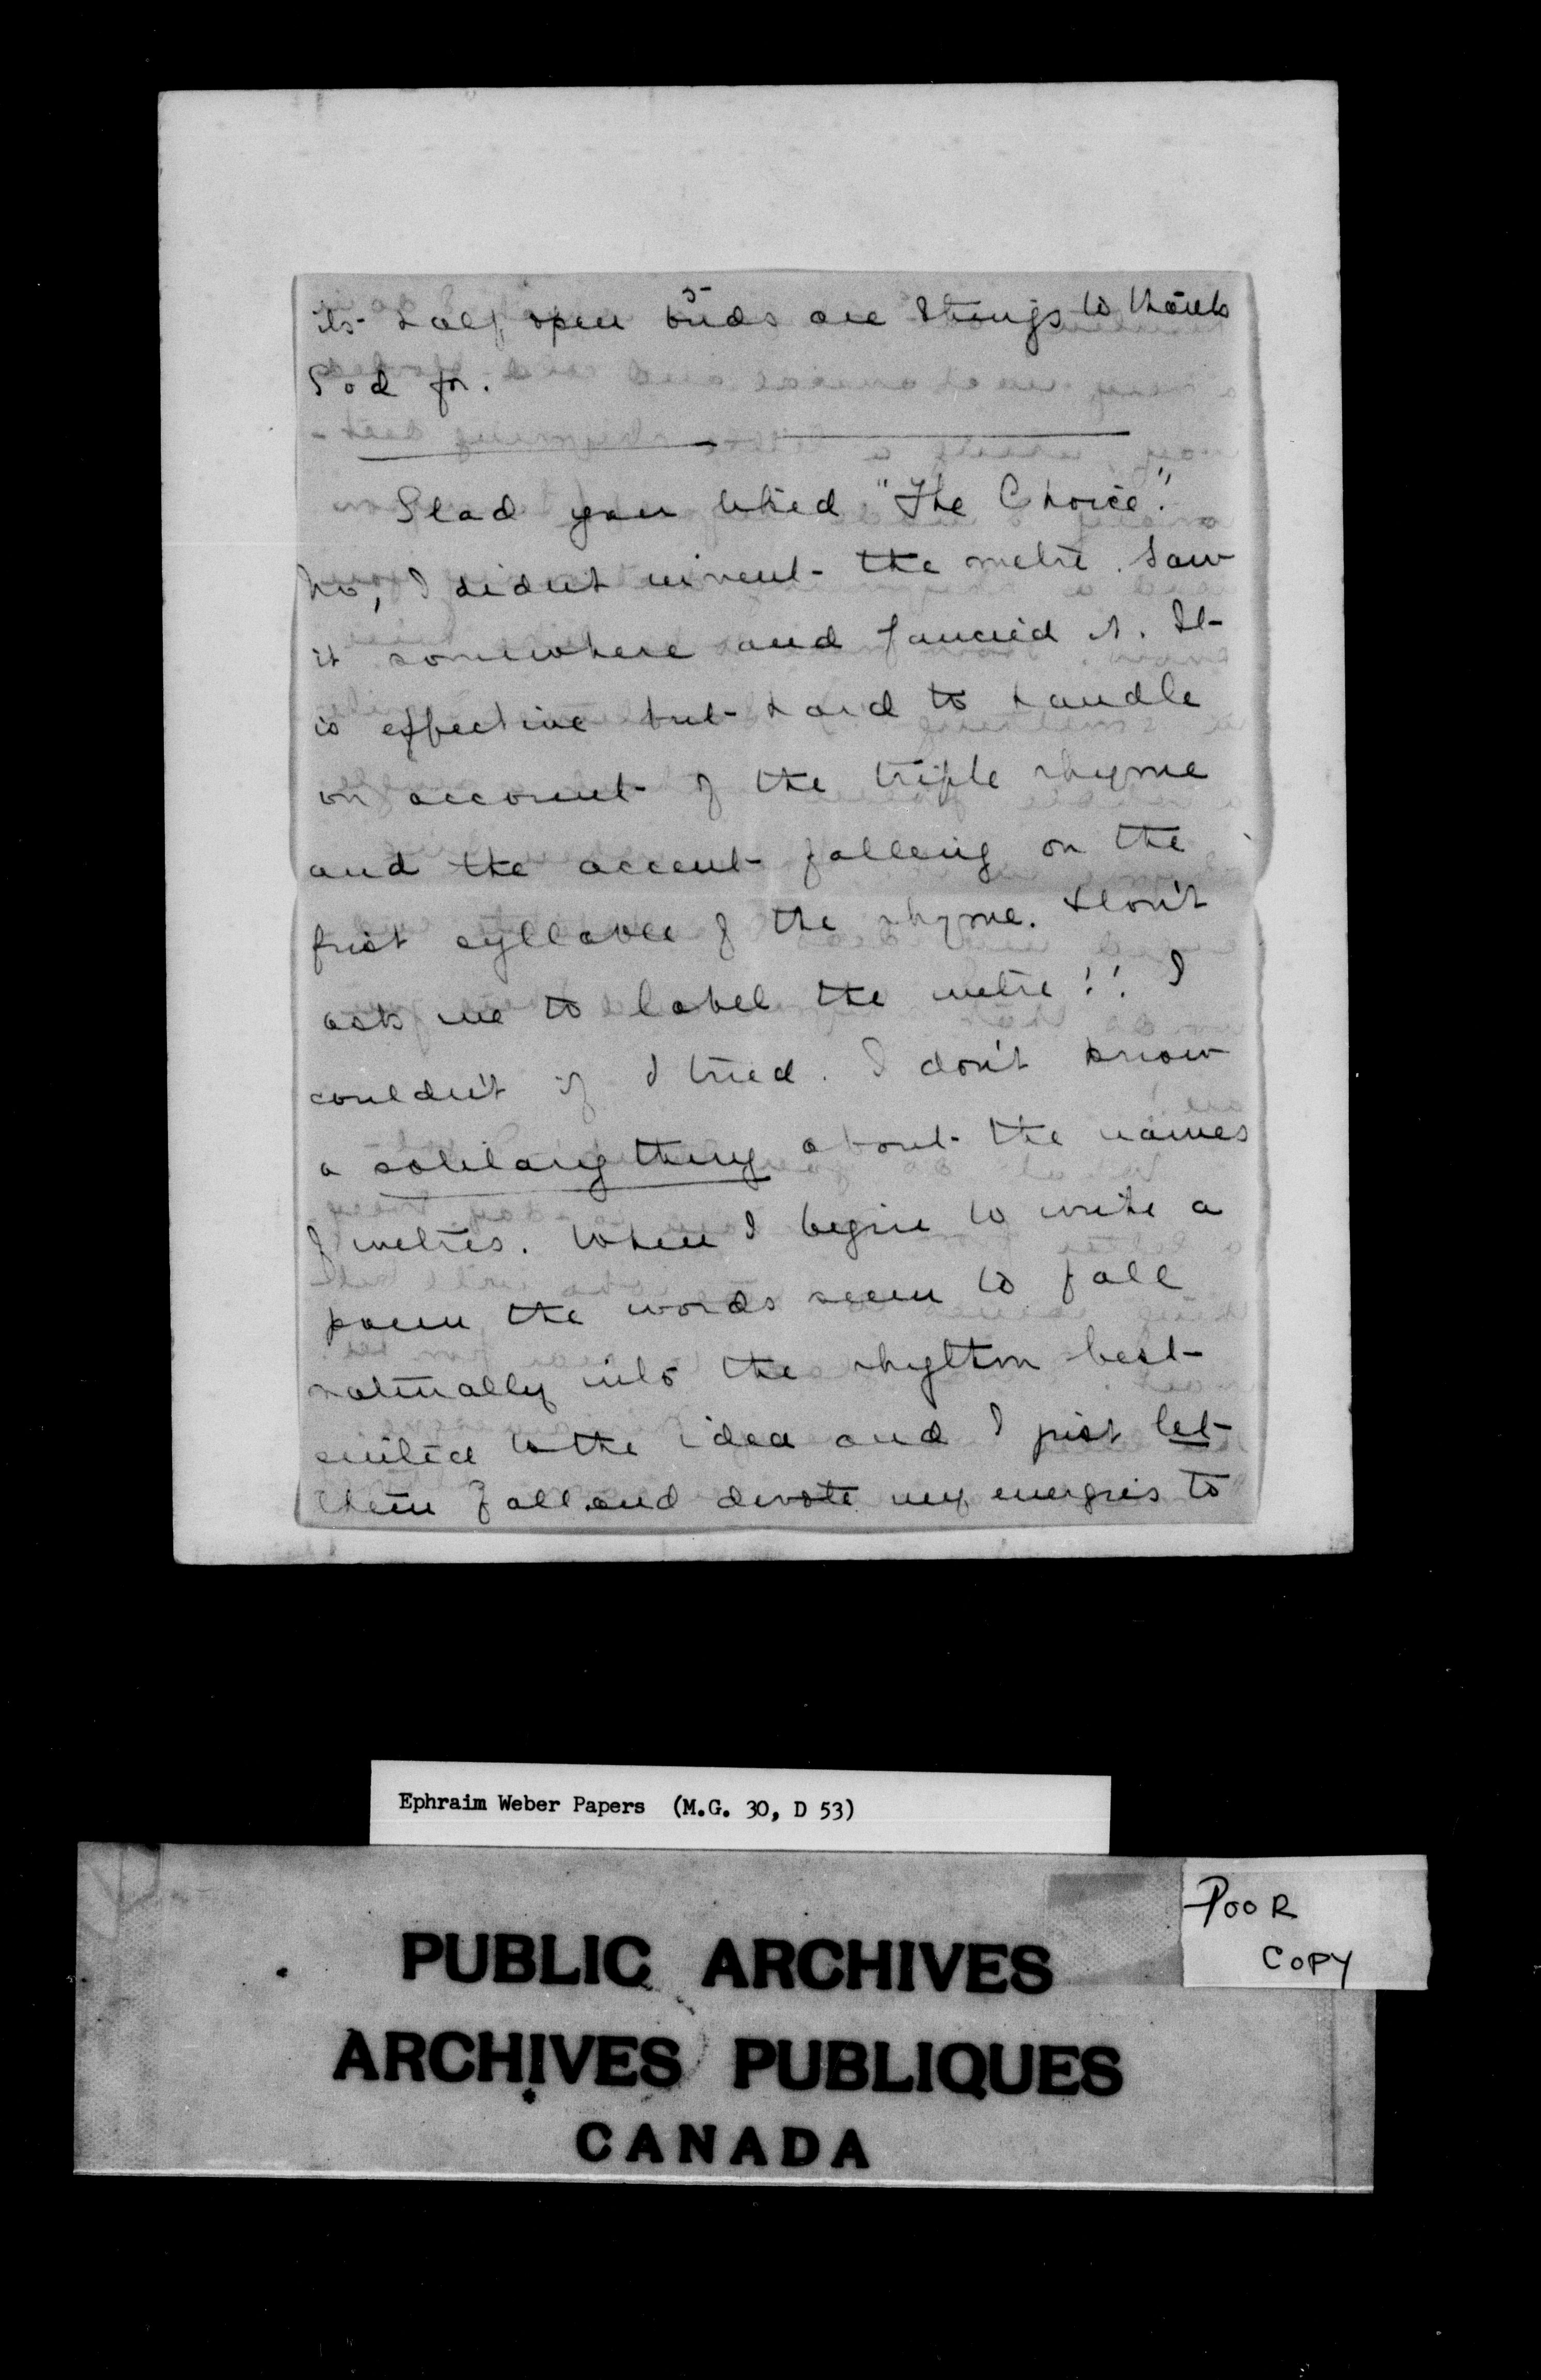 5
its half open buds are things to thank
God for.
Glad you liked "The Choice".
No, I didn't invent the metre. Saw
it somewhere and fancied it. It
is effective but hard to handle
on account of the triple rhyme
and the accent falling on the
first syllable of the rhyme. Don't
ask me to label the metre!! I
couldn't if I tried. I don't know
a solitary thing about the names
of metres. When I begin to write a
poem the words seem to fall
naturally into the rhythm best
suited to the idea and I just let
them fall and devote my energies to
Ephraim Weber Papers (M.G. 30, D 53)
POOR
COPY
PUBLIC ARCHIVES
ARCHIVES PUBLIQUES
CANADA